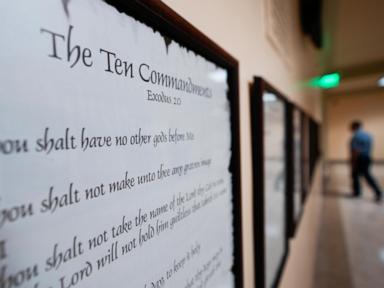 The Ten Commandments
Exodus 20
ou shalt have no other gods before Me
ou shalt not make unto thee any graven image
ou shalt not take the name of the Lord thy God in
e Lord will not hold him guiltless that
day, to keep it holy